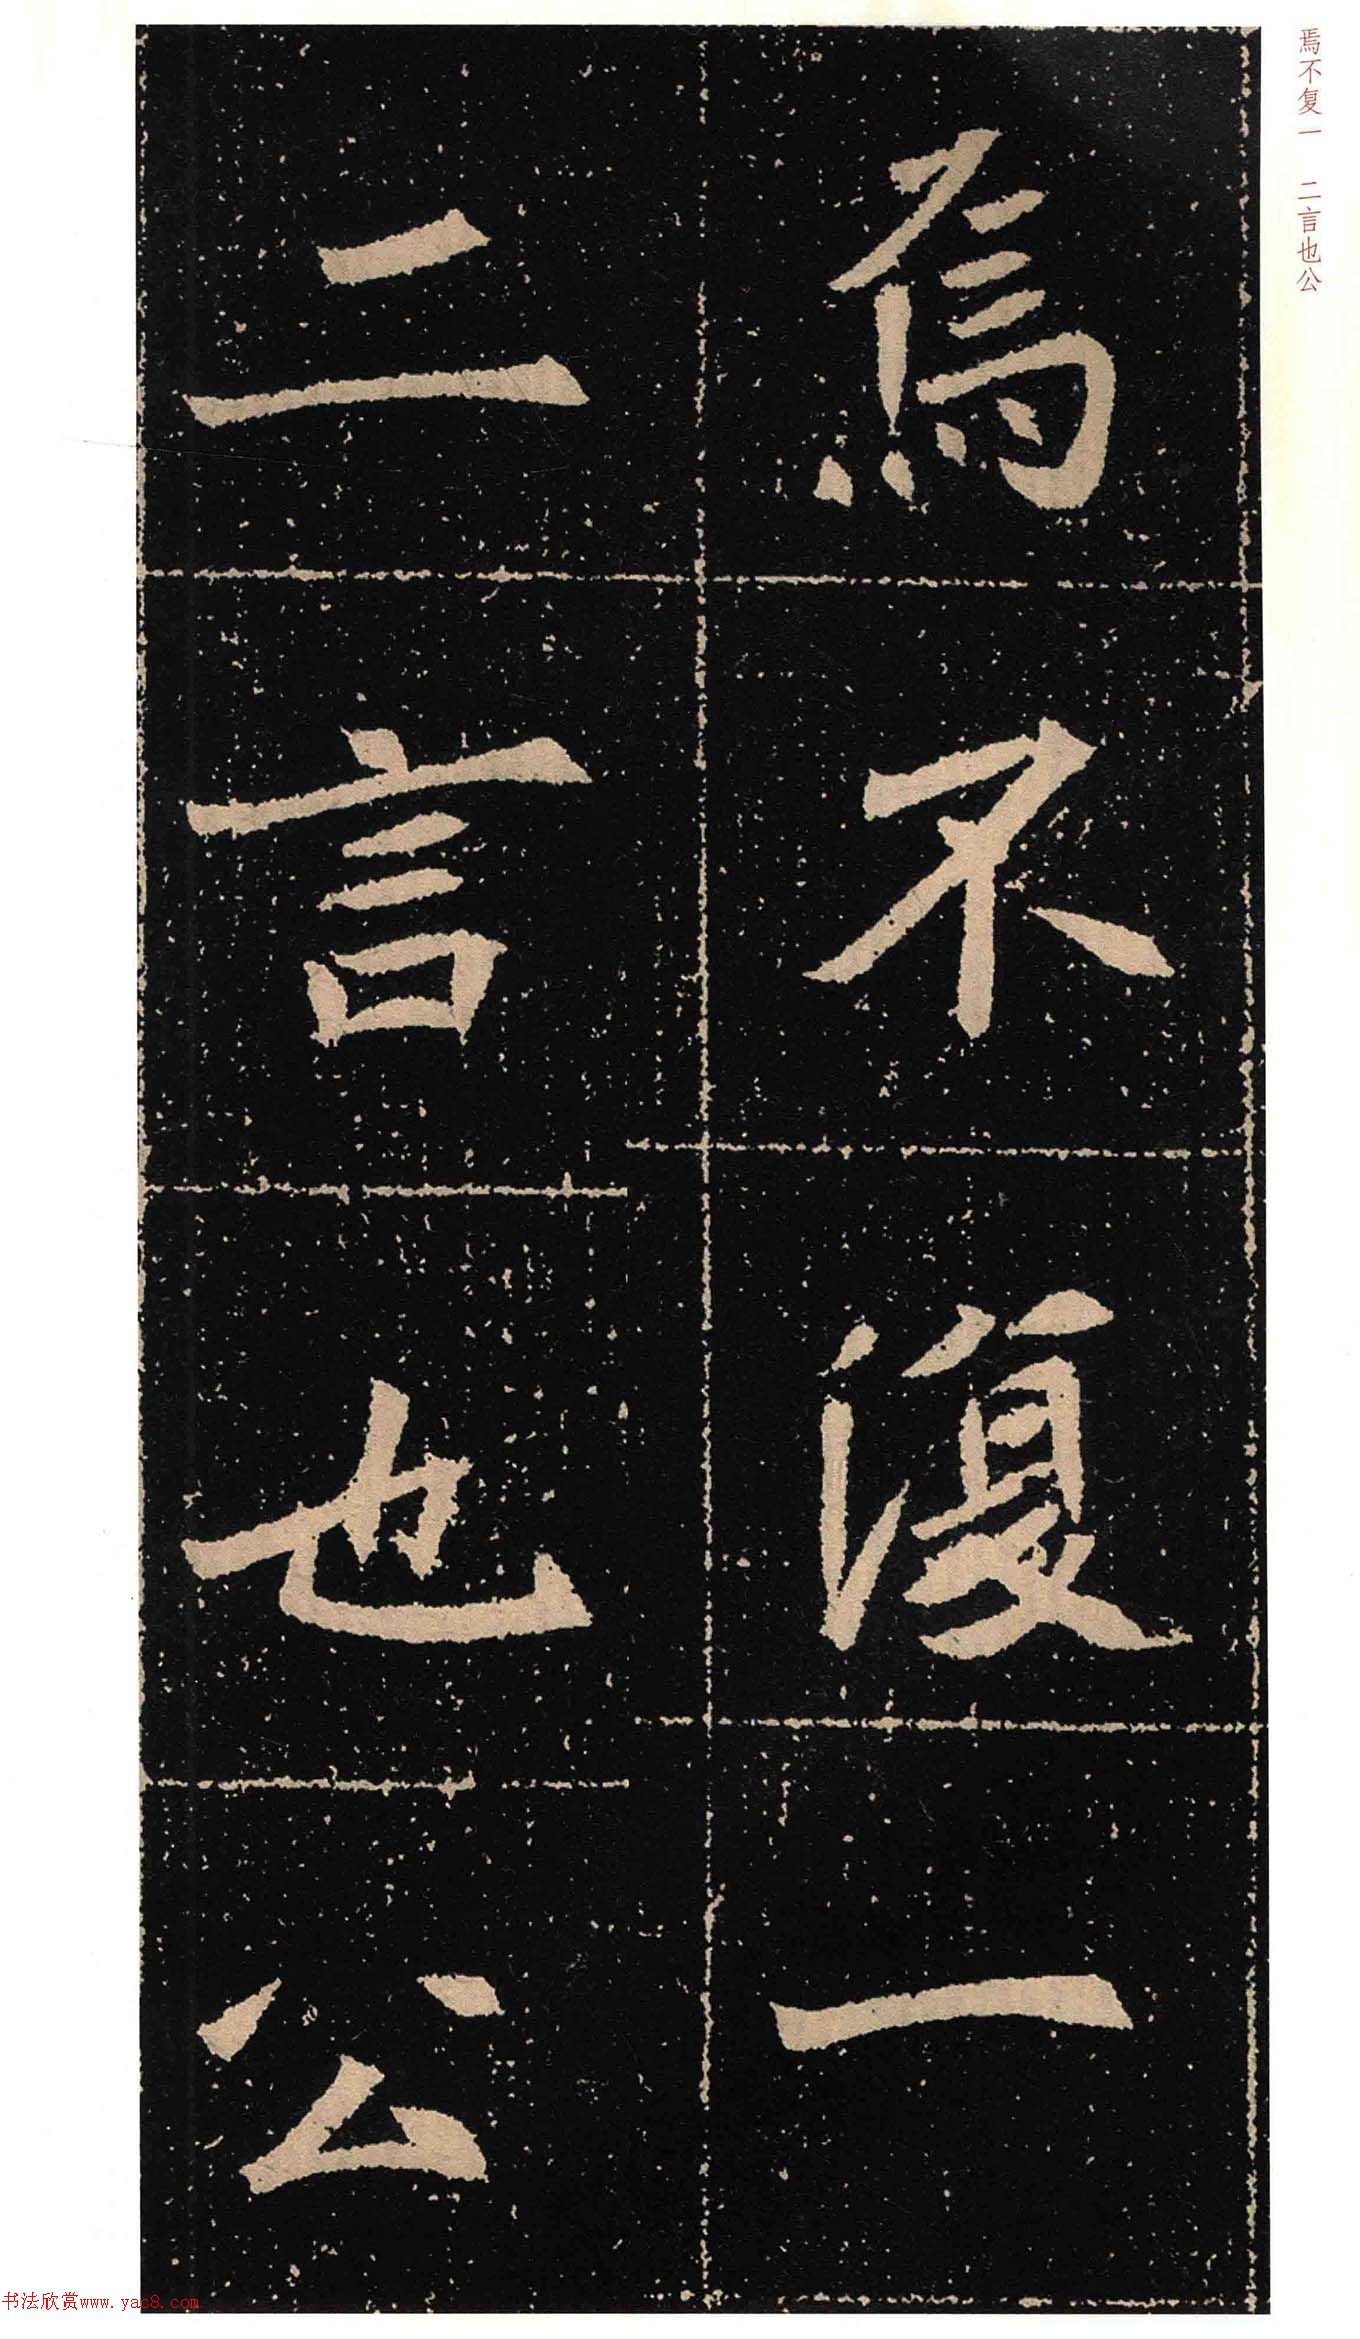 焉不复一 二言也公
焉不復一
二言也公
书法欣赏www.yac8.com